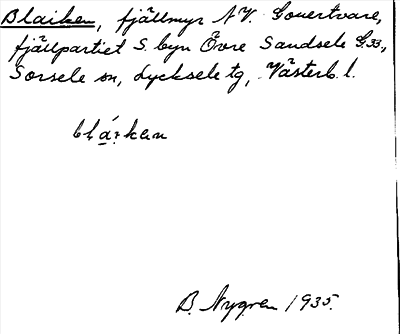 Blaiken, fjällmyr N.V. Gouertvare,
fjällpartiet S. byn Övre Sandsele G.33,
Sorsele sn, Lycksele tg, Västerb. l.
B. Nygren 1935.